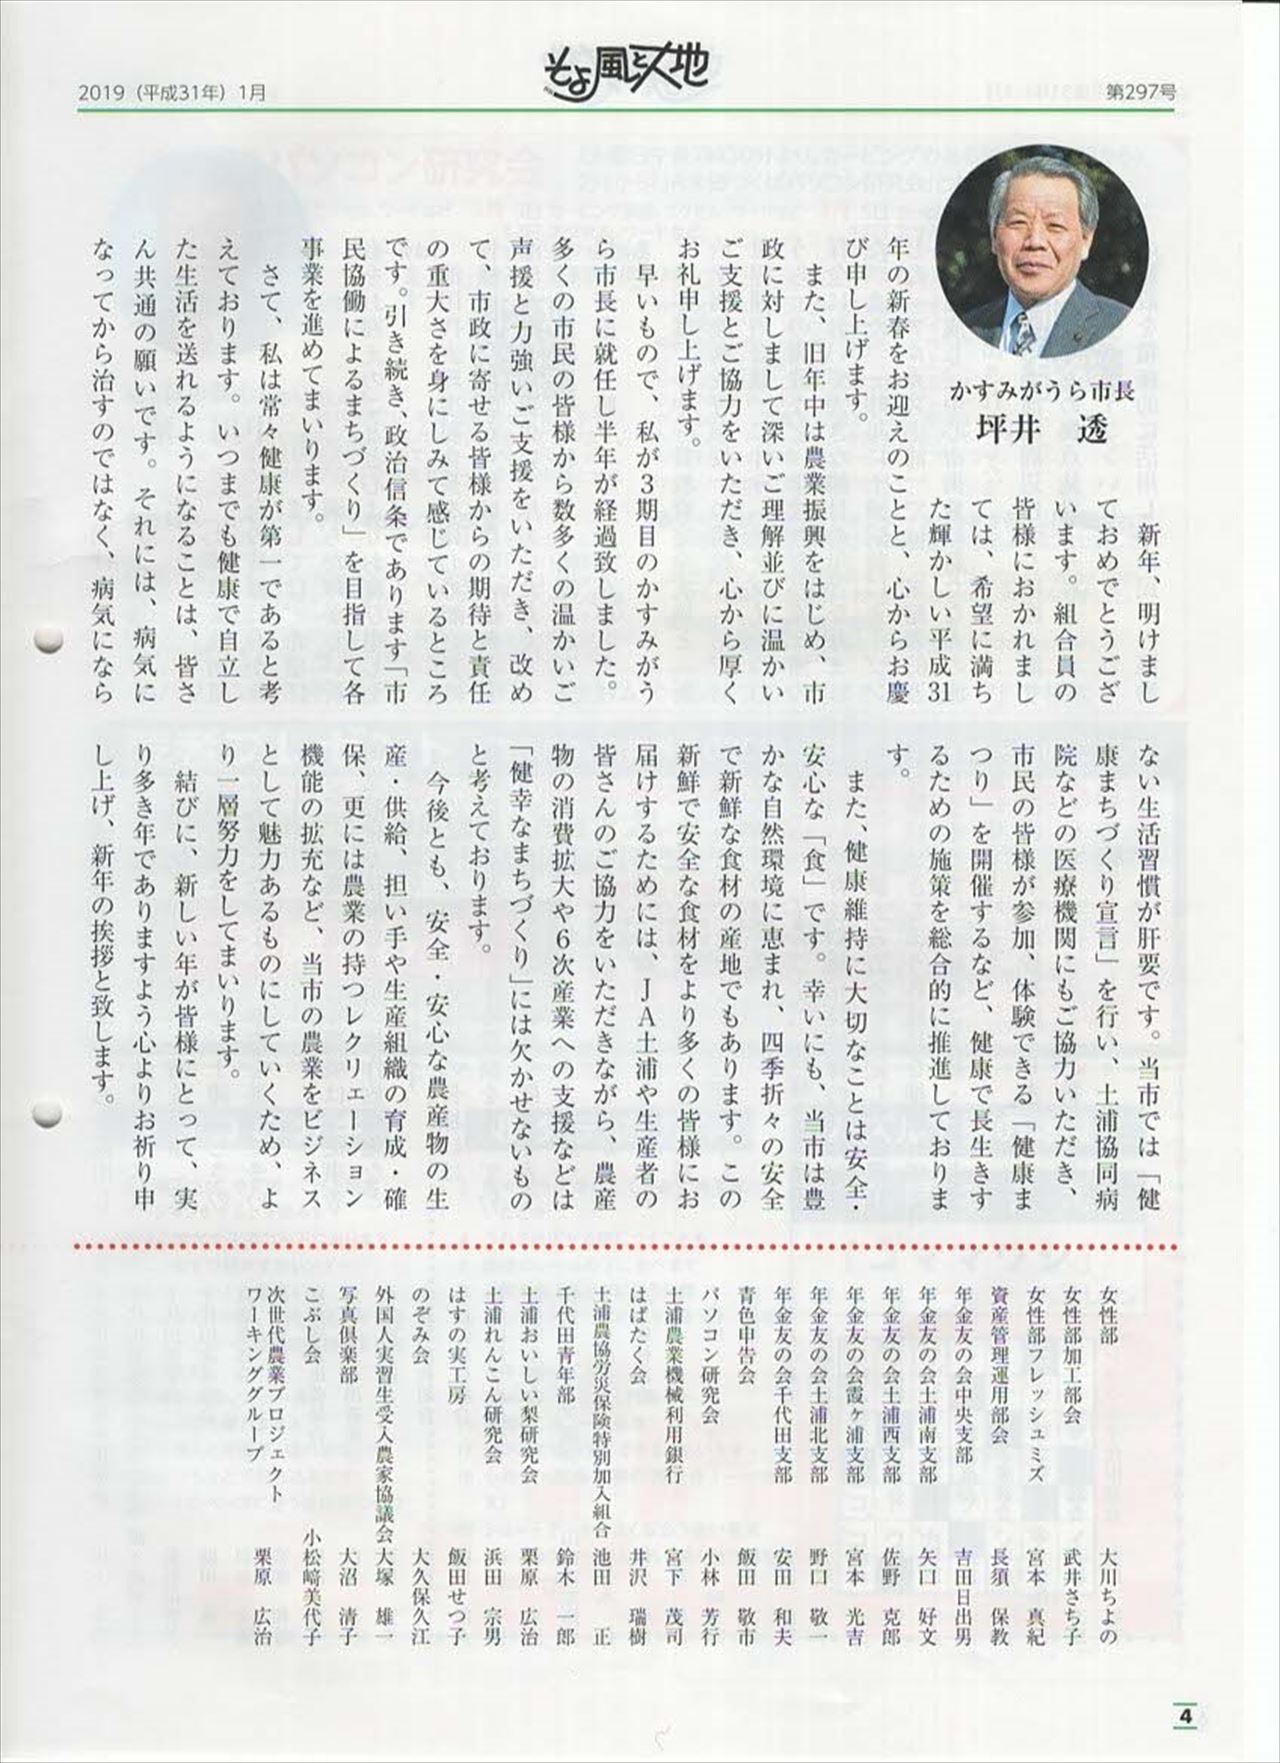 そよ風と大地
2019（平成31年）1月
第297号
かすみがうら市長
坪井　透
新年、明けまし
ておめでとうござ
います。組合員の
皆様におかれまし
ては、希望に満ち
た輝かしい平成31
年の新春をお迎えのことと、心からお慶
び申し上げます。
また、旧年中は農業振興をはじめ、市
政に対しまして深いご理解並びに温かい
ご支援とご協力をいただき、心から厚く
お礼申し上げます。
早いもので、私が3期目のかすみがう
ら市長に就任し半年が経過致しました。
多くの市民の皆様から数多くの温かいご
声援と力強いご支援をいただき、改め
て、市政に寄せる皆様からの期待と責任
の重大さを身にしみて感じているところ
です。引き続き、政治信条であります「市
民協働によるまちづくり」を目指して各
事業を進めてまいります。
さて、私は常々健康が第一であると考
えております。いつまでも健康で自立し
た生活を送れるようになることは、皆さ
ん共通の願いです。それには、病気に
なってから治すのではなく、病気になら
ない生活習慣が肝要です。当市では「健
康まちづくり宣言」を行い、土浦協同病
院などの医療機関にもご協力いただき、
市民の皆様が参加、体験できる「健康ま
つり」を開催するなど、健康で長生きす
るための施策を総合的に推進しておりま
す。
また、健康維持に大切なことは安全・
安心な「食」です。幸いにも、当市は豊
かな自然環境に恵まれ、四季折々の安全
で新鮮な食材の産地でもあります。この
新鮮で安全な食材をより多くの皆様にお
届けするためには、JA土浦や生産者の
皆さんのご協力をいただきながら、農産
物の消費拡大や6次産業への支援などは
「健幸なまちづくり」には欠かせないもの
と考えております。
今後とも、安全・安心な農産物の生
産・供給、担い手や生産組織の育成・確
保、更には農業の持つレクリェーション
機能の拡充など、当市の農業をビジネス
として魅力あるものにしていくため、よ
り一層努力をしてまいります。
結びに、新しい年が皆様にとって、実
り多き年でありますよう心よりお祈り申
し上げ、新年の挨拶と致します。
女性部　大川ちよの
女性部加工部会　武井さち子
女性部フレッシュミズ　宮本　真紀
資産管理運用部会　長須　保教
年金友の会中央支部　吉田日出男
年金友の会土浦南支部　矢口　好文
年金友の会土浦西支部　佐野　克郎
年金友の会霞ヶ浦支部　宮本　光吉
年金友の会土浦北支部　野口　敬一
年金友の会千代田支部　安田　和夫
青色申告会　飯田　敬市
パソコン研究会　小林　芳行
土浦農業機械利用銀行　宮下　茂司
はばたく会　井沢　瑞樹
土浦農協労災保険特別加入組合　池田　正
千代田青年部　鈴木　一郎
土浦おいしい梨研究会　栗原　広治
土浦れんこん研究会　浜田　宗男
はすの実工房　飯田せつ子
のぞみ会　大久保久江
外国人実習生受入農家協議会　大塚　雄一
写真倶楽部　大沼　清子
こぶし会　小松﨑美代子
次世代農業プロジェクト
ワーキンググループ　栗原　広治
4